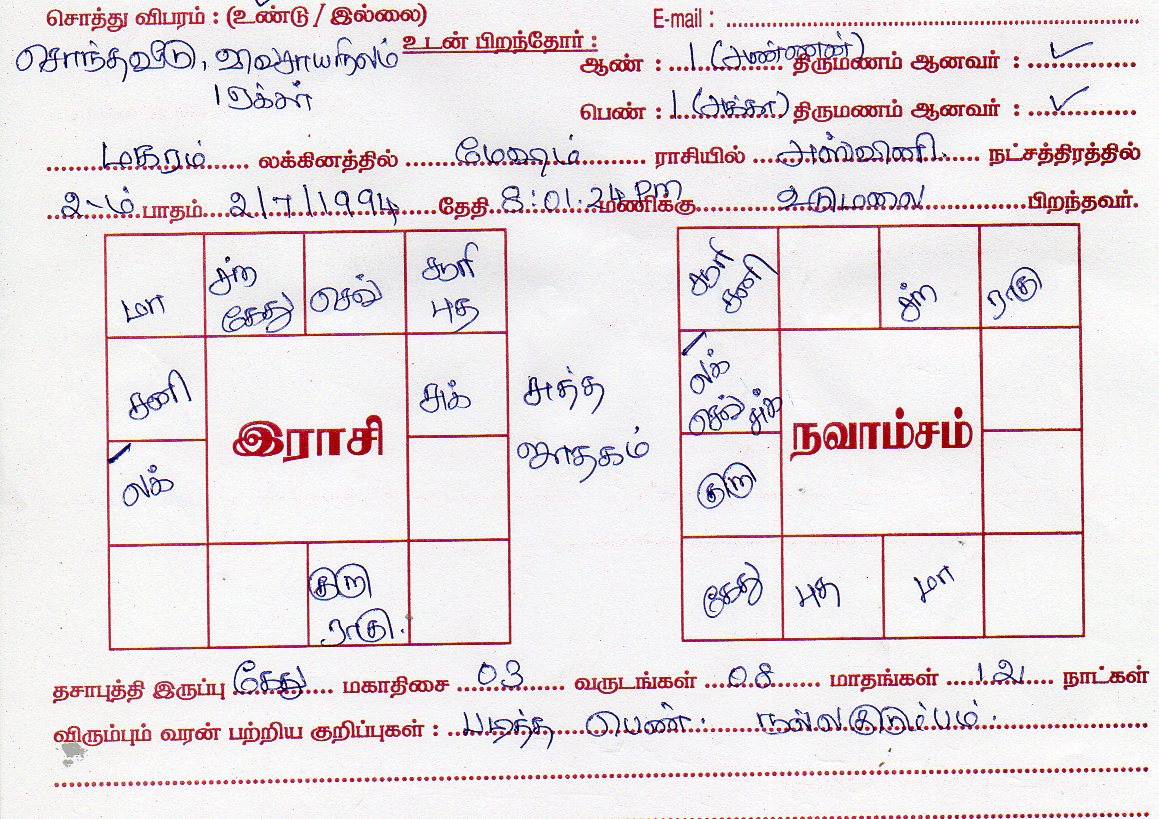 சொத்து விபரம் : (உண்டு / இல்லை) E-mail : ................
சொந்தவீடு, விவசாயநிலம்
1 ஏக்கர்
உடன் பிறந்தோர் :
ஆண் : 1 (அண்ணன்) திருமணம் ஆனவர் : ✓
பெண் : 1 (அக்கா) திருமணம் ஆனவர் : ✓
மகரம் லக்கினத்தில் மேஷம் ராசியில் அஸ்வினி நட்சத்திரத்தில்
2-ம் பாதம் 2/7/1994 தேதி 8:01.24 pm மணிக்கு உடுமலை பிறந்தவர்.
மா சந் கேது செவ் சூரி புத
சனி சுக்
இராசி
லக்
குரு ராகு.
சுத்த
ஜாதகம்
சூரி சனி சந் ராகு
லக் செவ் சுக்
நவாம்சம்
குரு
கேது புத மா
தசாபுத்தி இருப்பு கேது மகாதிசை 03 வருடங்கள் 08 மாதங்கள் 12 நாட்கள்
விரும்பும் வரன் பற்றிய குறிப்புகள் : படித்த பெண். நல்லகுடும்பம்.